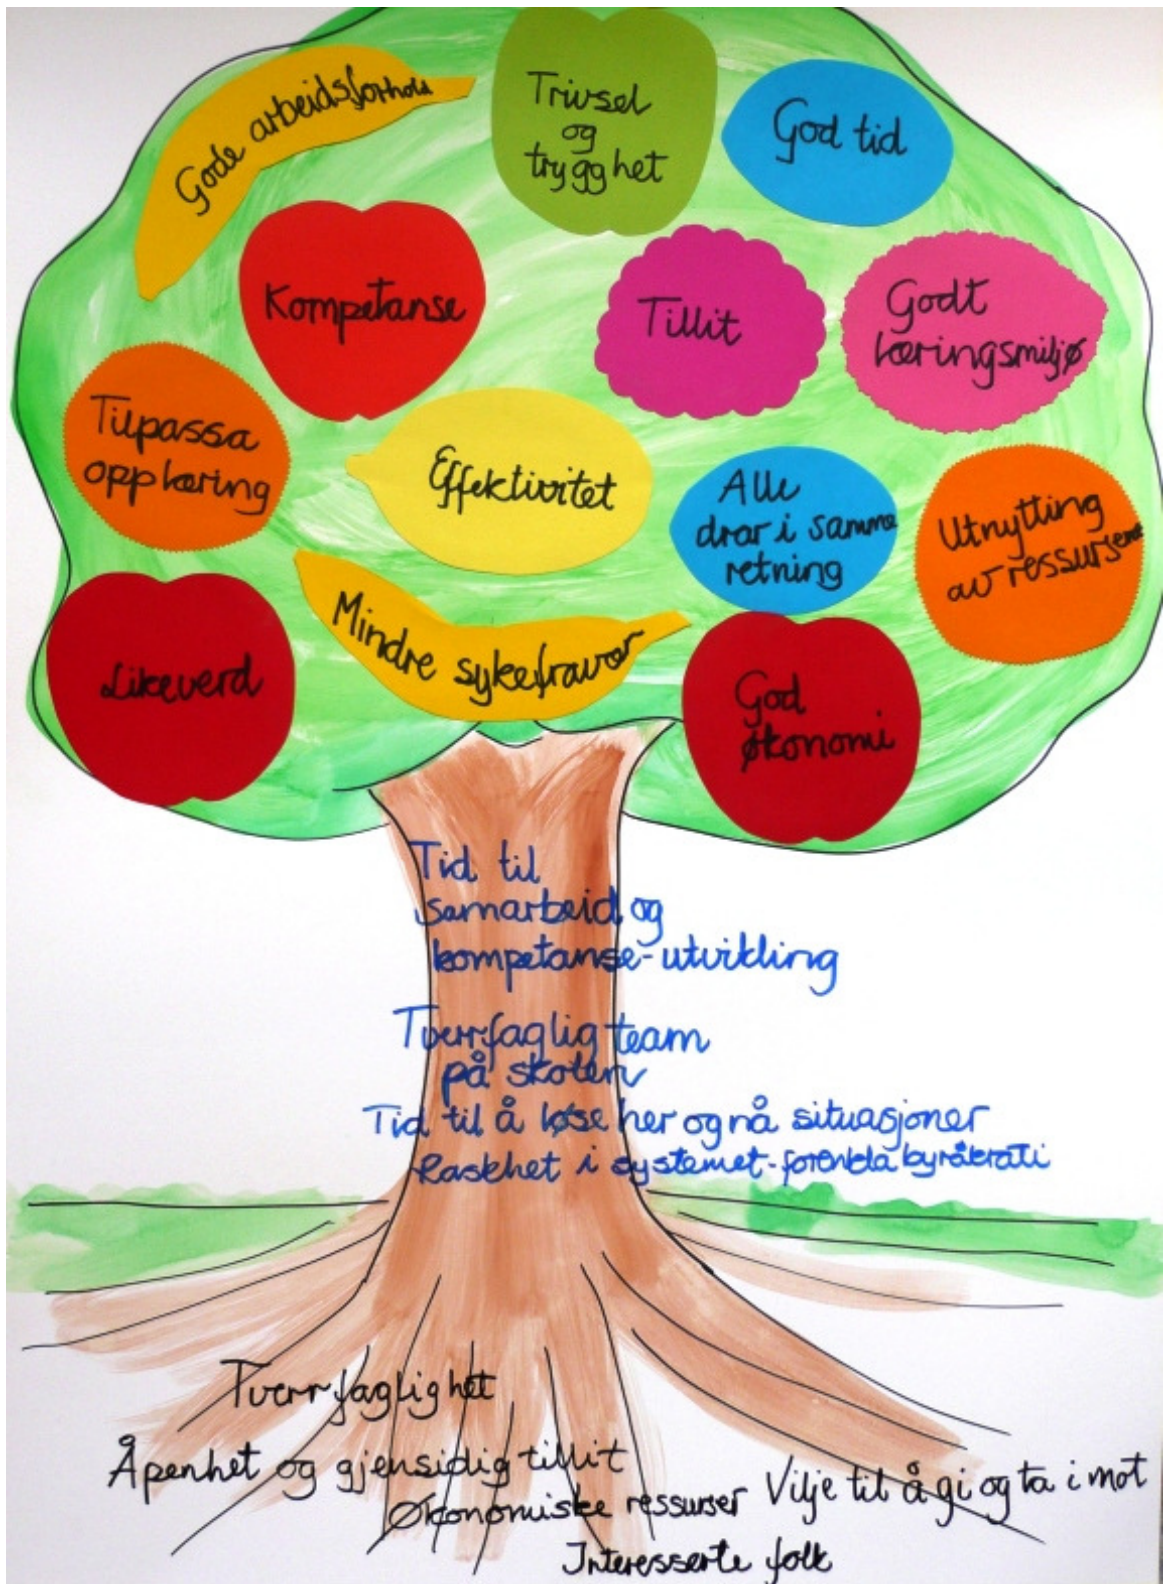 Gode arbeidsforhold
Trivsel
og
trygghet
God tid
Kompetanse
Tillit
Godt
læringsmiljø
Tilpassa
opplæring
Effektivitet
Alle
drar i samme
retning
Utnytting
av ressursene
Likeverd
Mindre sykefravær
God
økonomi
Tid til
samarbeid og
kompetanse-utvikling
Tverrfaglig team
på skolen
Tid til å løse her og nå situasjoner
Raskhet i systemet-forenkla byråkrati
Tverrfaglighet
Åpenhet og gjensidig tillit
Økonomiske ressurser
Vilje til å gi og ta i mot
Interesserte folk